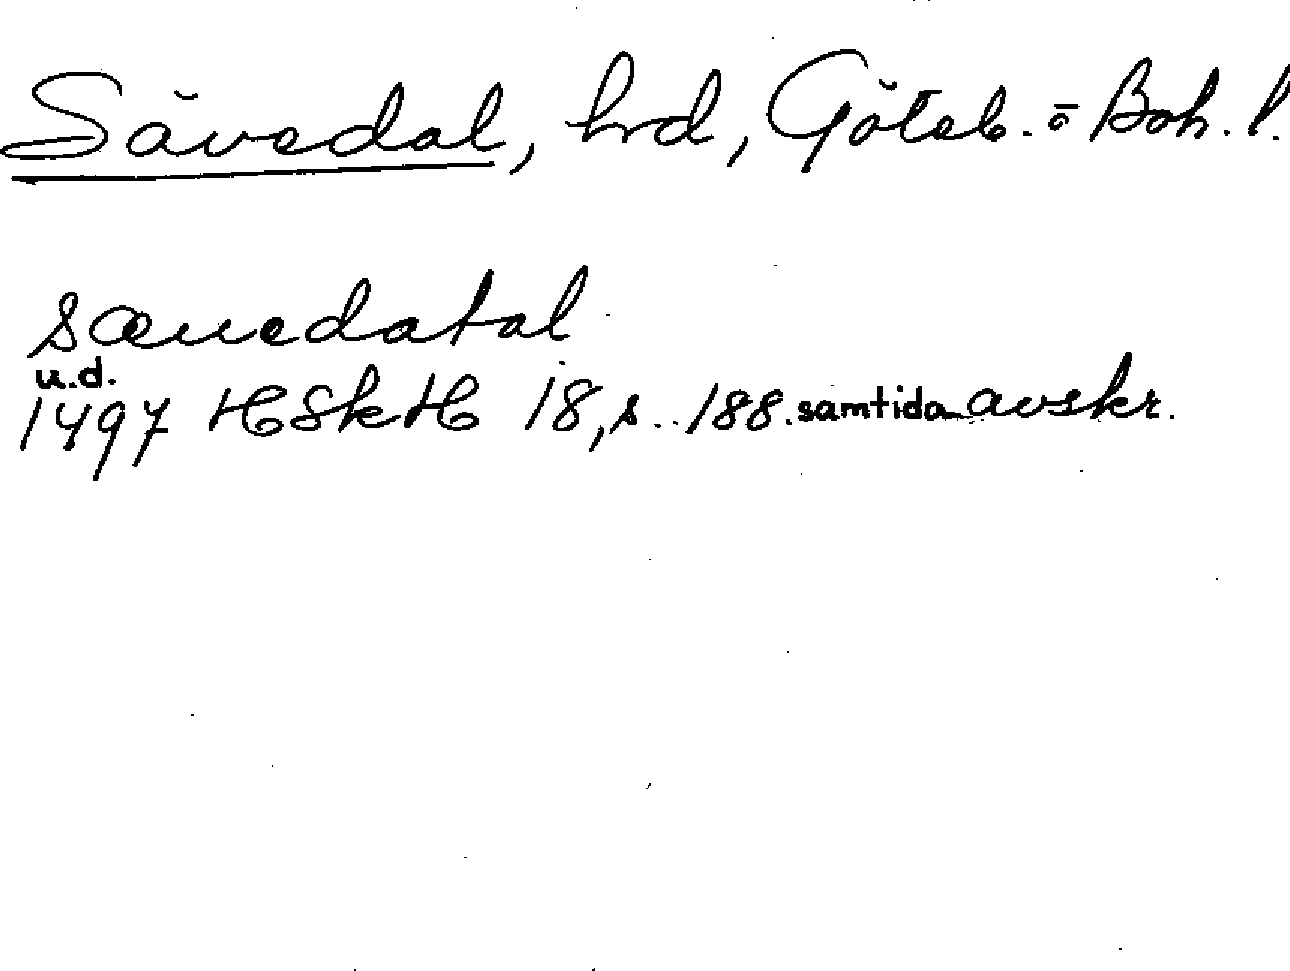 Sävedal, hrd, Göteb. o Boh. l.
sæuedatal
u.d.
1497 HSkH 18, s. 188. samtida avskr.